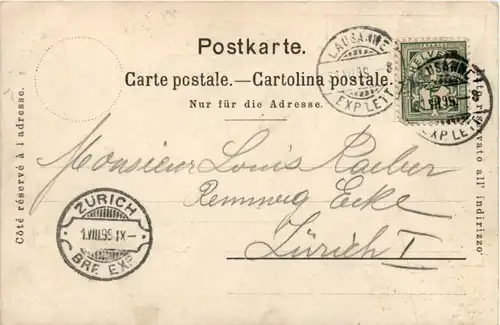 Postkarte.
Carte postale.—Cartolina postale.
Nur für die Adresse.
Côté réservé à l'adresse.
Lato riservato all' indirizzo
LAUSANNE
EXP. LETT.
HELVETIA
LAUSANNE
EXP. LETT.
Monsieur Louis Raeber
Rennweg Ecke
Zürich I
ZÜRICH
1.VIII.99.IX-
BRF. EXP.